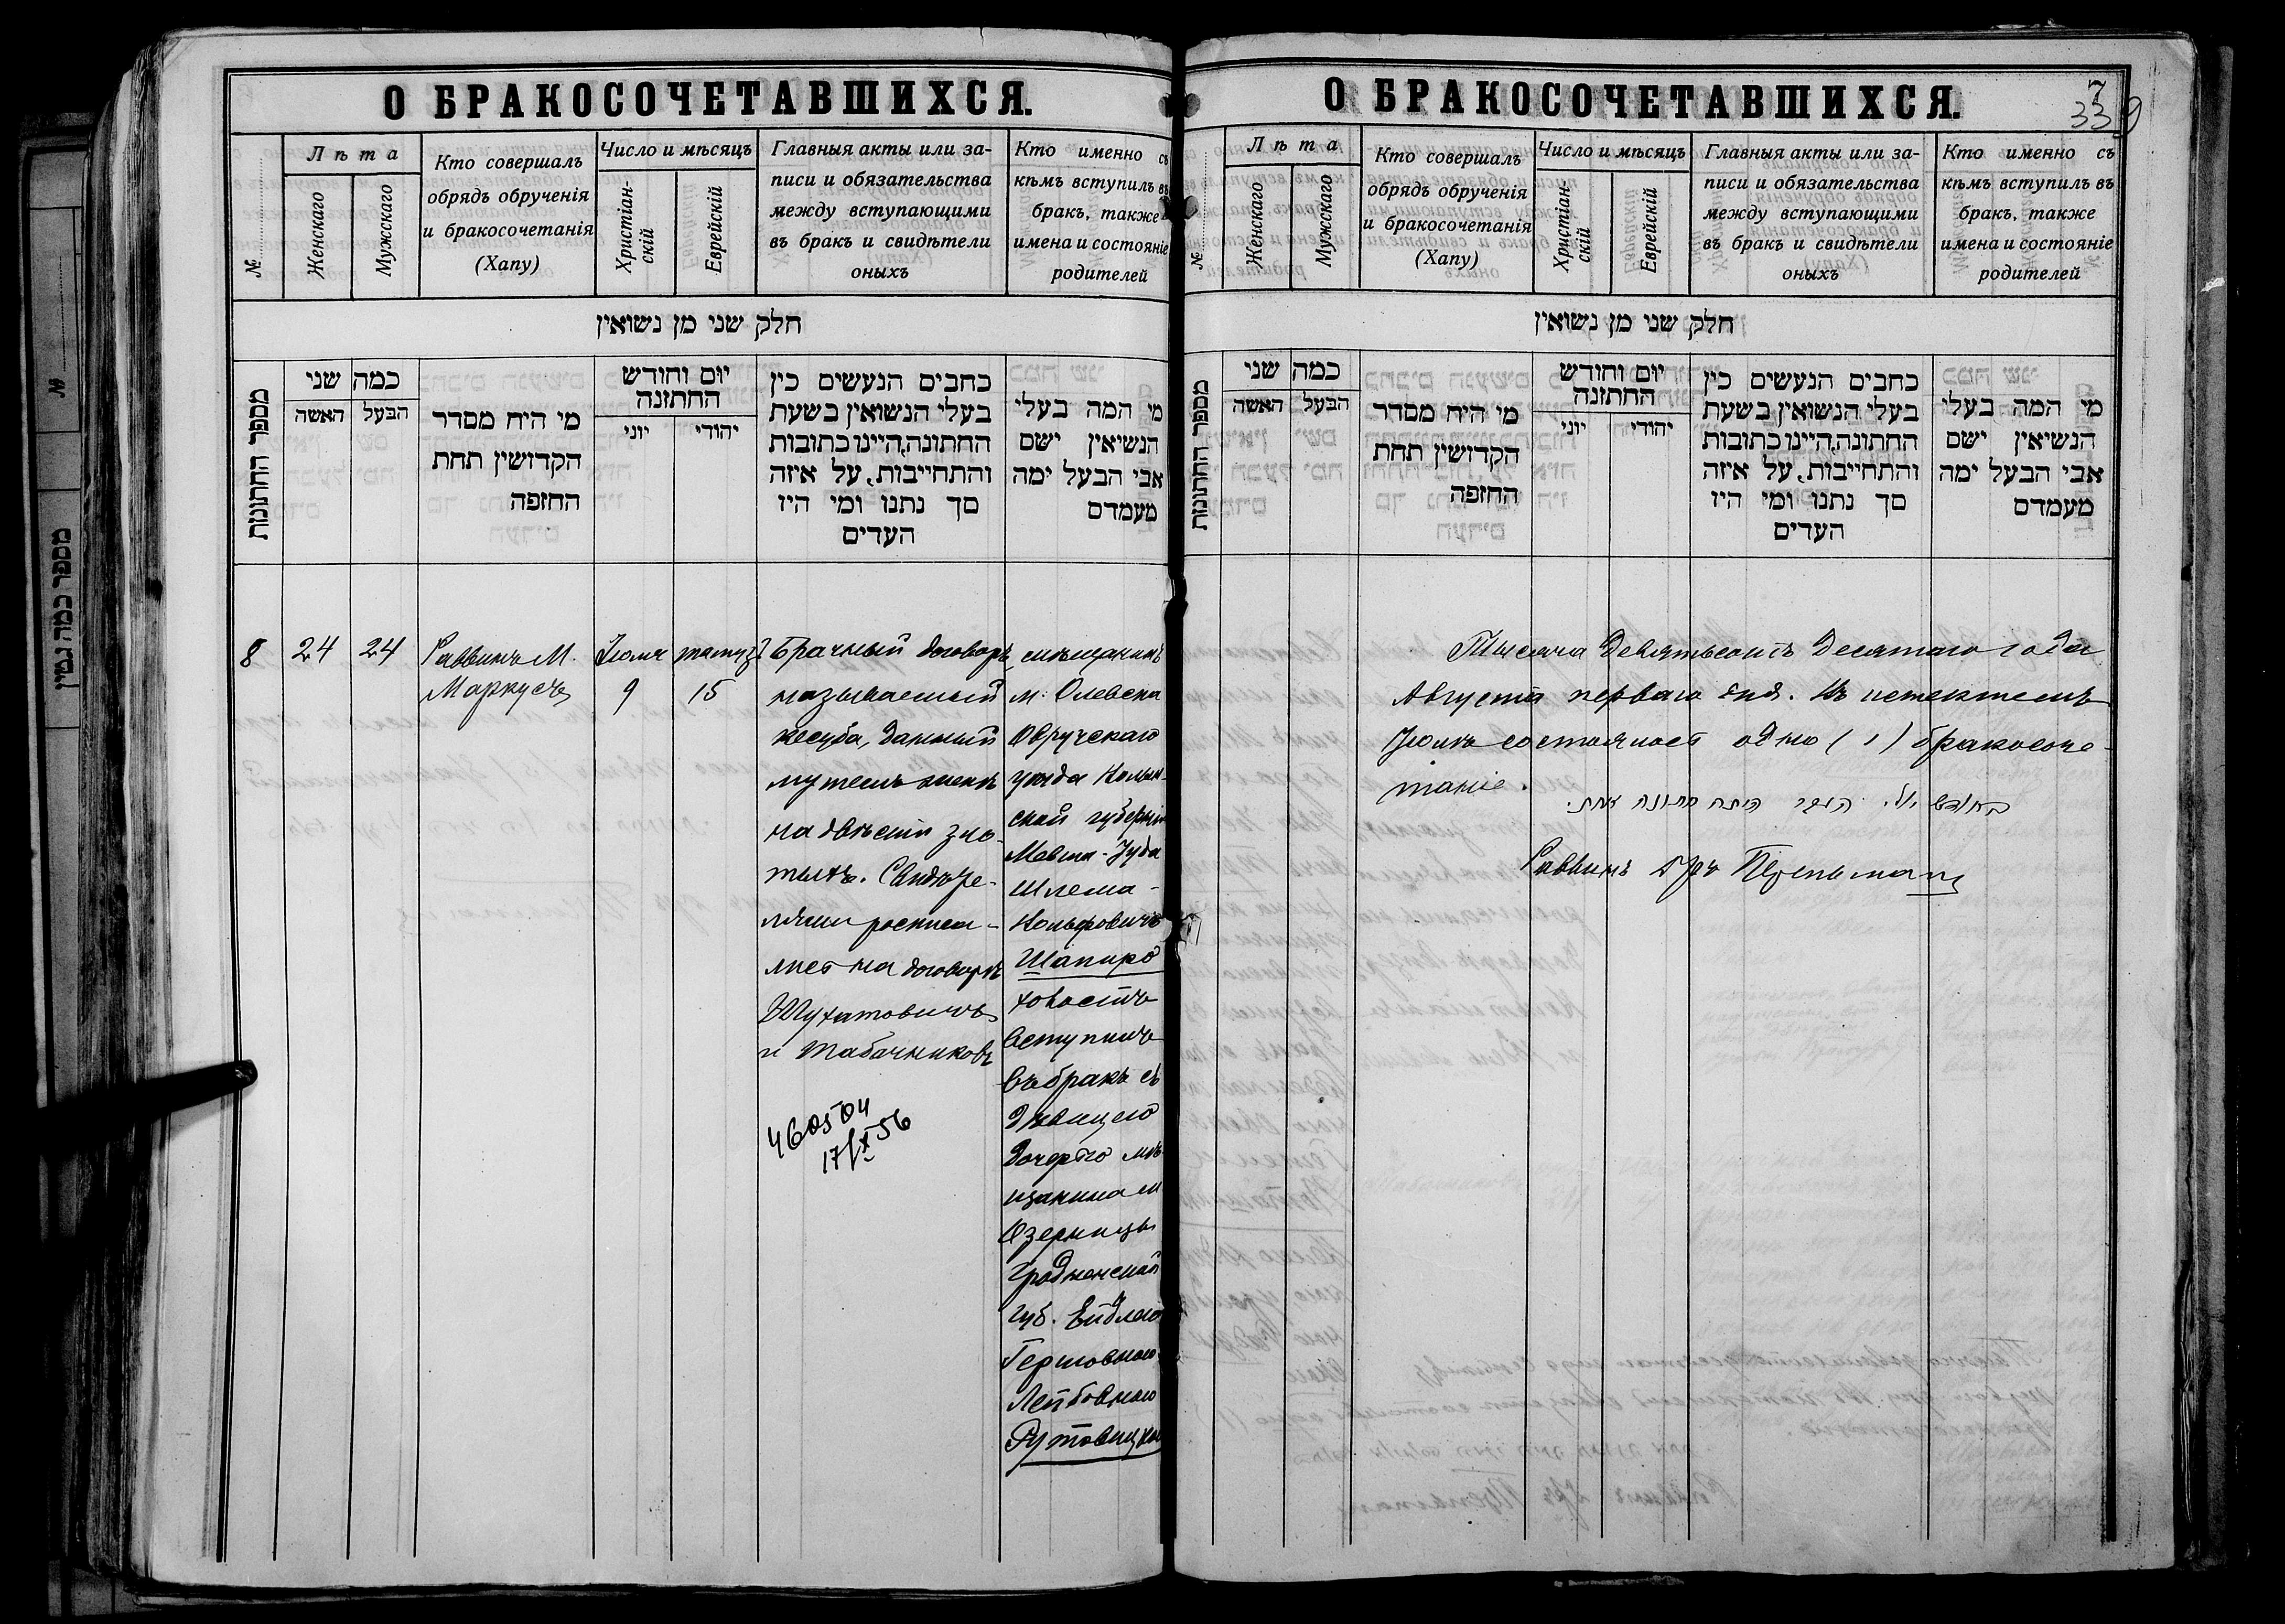 О БРАКОСОЧЕТАВШИХСЯ.
№
Лѣта
Женскаго
Мужскаго
Кто совершалъ
обрядъ обрученія
и бракосочетанія
(Хапу)
Число и мѣсяцъ
Христіан-
скій
Еврейскій
Главныя акты или за-
писи и обязательства
между вступающими
въ бракъ и свидѣтели
оныхъ
Кто именно съ
кѣмъ вступилъ въ
бракъ, также
имена и состояніе
родителей
חלק שני מן נשואין
מספר החתונות
כמה שני
האשה
הבעל
מי היח מסדר
הקדושין תחת
החזפה
יום וחודש
החתזנה
יוני
יהודי
כחבים הנעשים כין
בעלי הנשואין בשעת
החתונה, היינו כתובות
והתחייבות, על איזה
סך נתנו ומי היז
העדים
מי המה בעלי
הנשיאין ישם
אבי הבעל ימה
מעמדם
8
24
24
Раввинъ М.
Маркусъ
Іюля
9
тамуз
15
Брачный договоръ
называемый
кесуба, данный
мужемъ женѣ
на двѣсти зло-
тыхъ. Свидѣте-
лями росписа-
лись на договорѣ
Шухатовичъ
и Табачниковъ
460504
17/X 56
мѣщанинъ
м. Олевска
Овручскаго
уѣзда Волын-
ской губерніи
Мовша-Іуда
Шлема-
Вольфовичъ
Шапиро
холостъ
вступилъ
въ бракъ съ
дѣвицею
дочерью мѣ-
щанина м.
Озерницы
Гродненской
губ. Ейдлею
Гершовною
Лейбовною
Рутовицкой
О БРАКОСОЧЕТАВШИХСЯ.
7
339
№
Лѣта
Женскаго
Мужскаго
Кто совершалъ
обрядъ обрученія
и бракосочетанія
(Хапу)
Число и мѣсяцъ
Христіан-
скій
Еврейскій
Главныя акты или за-
писи и обязательства
между вступающими
въ бракъ и свидѣтели
оныхъ
Кто именно съ
кѣмъ вступилъ въ
бракъ, также
имена и состояніе
родителей
חלק שני מן נשואין
מספר החתונות
כמה שני
האשה
הבעל
מי היח מסדר
הקדושין תחת
החזפה
יום וחודש
החתזנה
יוני
יהודי
כחבים הנעשים כין
בעלי הנשואין בשעת
החתונה, היינו כתובות
והתחייבות, על איזה
סך נתנו ומי היז
העדים
מי המה בעלי
הנשיאין ישם
אבי הבעל ימה
מעמדם
Тысяча девятьсотъ десятаго года
Августа перваго дня. Въ истекшемъ
Іюлѣ состоялось одно (1) бракосоче-
таніе.
בחודש יולי היתה חתונה אחת.
Раввинъ
№
מספר כמה גמיין